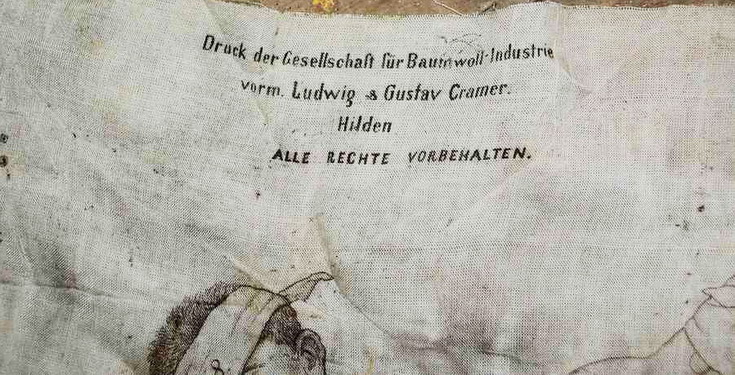 Druck der Gesellschaft für Baumwoll-Industrie
vorm. Ludwig & Gustav Cramer.
Hilden
ALLE RECHTE VORBEHALTEN.